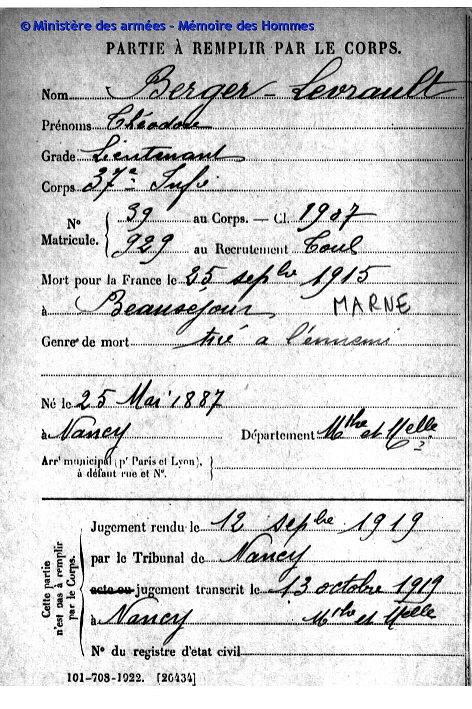 © Ministère des armées - Mémoire des Hommes
PARTIE À REMPLIR PAR LE CORPS.
Nom Berger-Levrault
Prénoms Théodore
Grade Lieutenant
Corps 37e Infie
N° Matricule. { 39 au Corps. — Cl. 1907
929 au Recrutement Toul
Mort pour la France le 25 sepbre 1915
à Beauséjour MARNE
Genre de mort tué a l'ennemi
Né le 25 Mai 1887
à Nancy Département Mthe et Melle
Arrt municipal (pr Paris et Lyon),
à défaut rue et N°.
Cette partie n'est pas à remplir par le Corps.
Jugement rendu le 12 sepbre 1919
par le Tribunal de Nancy
acte ou jugement transcrit le 13 octobre 1919
à Nancy Mthe et Melle
N° du registre d'état civil
101-708-1922. [26434]